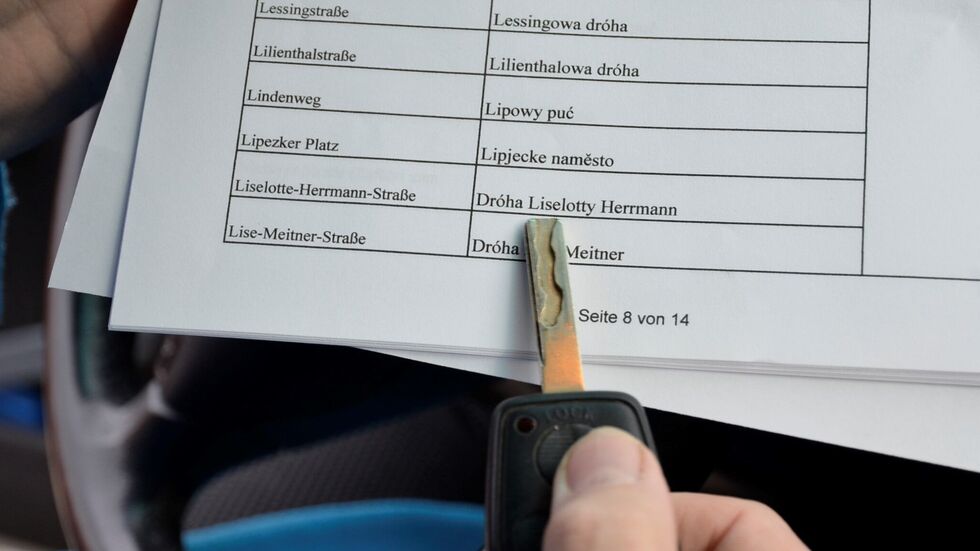 Lessingstraße Lessingowa dróha
Lilienthalstraße Lilienthalowa dróha
Lindenweg Lipowy puć
Lipezker Platz Lipjecke naměsto
Liselotte-Herrmann-Straße Dróha Liselotty Herrmann
Lise-Meitner-Straße Dróha Meitner
Seite 8 von 14
LOCK